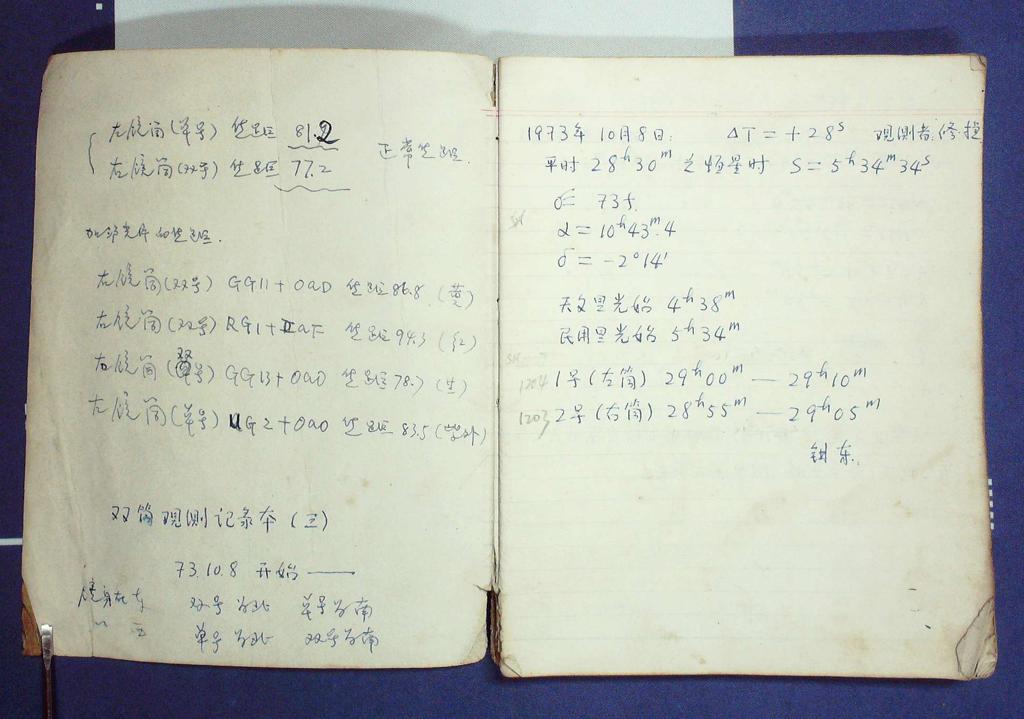 左镜筒(单号) 焦距 81.2
右镜筒(双号) 焦距 77.2
正常焦距.
加邻光片的焦距.
右镜筒(双号) GG11+OaD 焦距86.8 (黄)
右镜筒(双号) RG1+IIaF 焦距94.3 (红)
右镜筒(双号) GG13+OaO 焦距78.7 (兰)
左镜筒(单号) UG2+OaO 焦距83.5 (紫外)
双筒观测记录本 (三)
73.10.8 开始 ——
镜身在东 双号为北 单号为南
〃 西 单号为北 双号为南
1973年10月8日: ΔT=+28ˢ 观测者:
平时 28ʰ30ᵐ 之恒星时 S=5ʰ34ᵐ34ˢ
735.
α=10ʰ43ᵐ.4
δ=-2°14′
天文晨光始 4ʰ38ᵐ
民用晨光始 5ʰ34ᵐ
1204 1号(左筒) 29ʰ00ᵐ — 29ʰ10ᵐ
1203 2号(右筒) 28ʰ55ᵐ — 29ʰ05ᵐ
镜东.